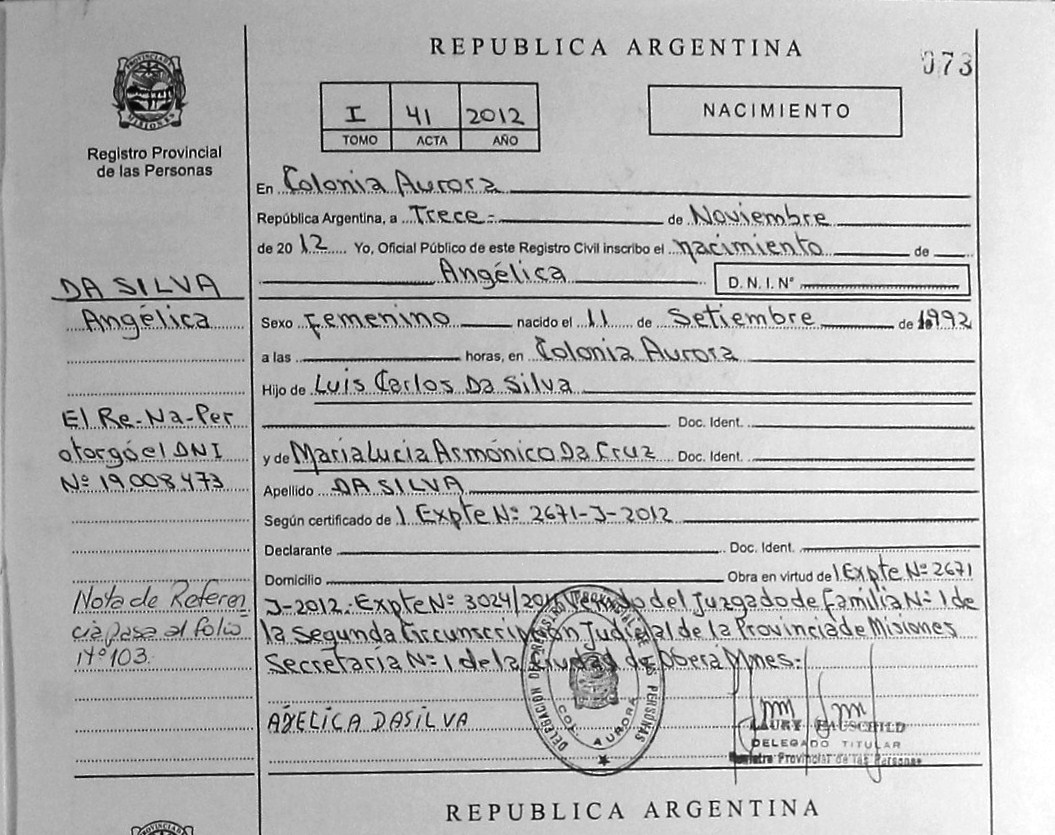 REPUBLICA ARGENTINA
073
PROVINCIA DE MISIONES
Registro Provincial
de las Personas
I 41 2012
TOMO ACTA AÑO
NACIMIENTO
En Colonia Aurora
República Argentina, a Trece.- de Noviembre
de 2012 Yo, Oficial Público de este Registro Civil inscribo el nacimiento de
Angélica D.N.I.Nº
DA SILVA
Angélica
Sexo Femenino nacido el 11 de Setiembre de 1992
a las horas, en Colonia Aurora
Hijo de Luis Carlos Da Silva
Doc. Ident.
y de Maria Lucia Armónico Da Cruz Doc. Ident.
Apellido DA SILVA
Según certificado de 1 Expte Nº 2671-J-2012
Declarante Doc. Ident.
Domicilio Obra en virtud de 1 Expte Nº 2671
J-2012. Expte Nº 3024/2011 del Juzgado de Familia Nº 1 de
la Segunda Circunscripción Judicial de la Provincia de Misiones
Secretaría Nº 1 de la Ciudad de Oberá Mnes.-
El Re-Na-Per
otorgó el DNI
Nº 19.008.473
Nota de Referen
cia pasa al folio
Nº 103.
AXELICA DASILVA
DELEGACION DEL REGISTRO PROVINCIAL DE LAS PERSONAS
COL. AURORA
LAURY HAUSCHILD
DELEGADO TITULAR
Registro Provincial de las Personas
REPUBLICA ARGENTINA